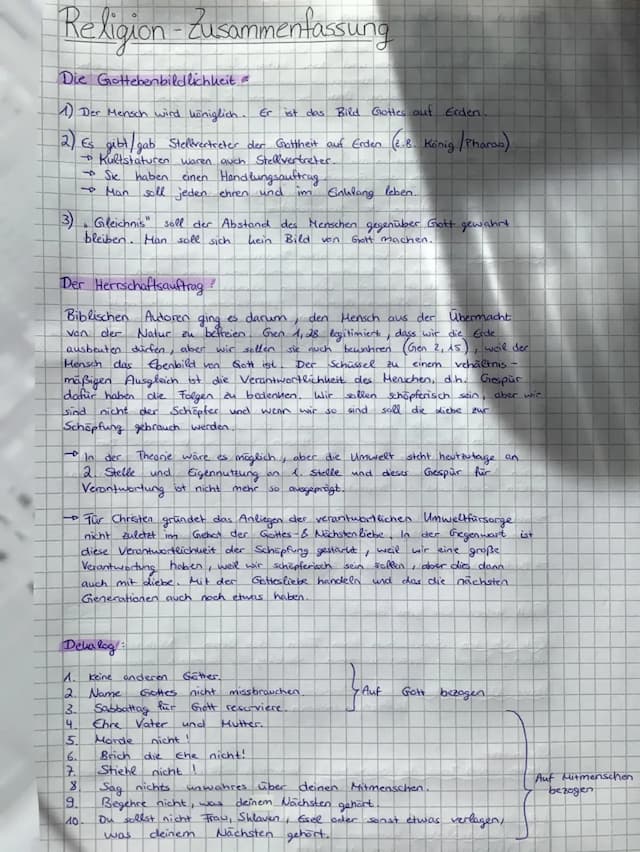 Religion - Zusammenfassung
Die Gottebenbildlichkeit:
1) Der Mensch wird königlich. Er ist das Bild Gottes auf Erden.
2) Es gibt/gab Stellvertreter der Gottheit auf Erden (z.B. König/Pharao)
→ Kultstaturen waren auch Stellvertreter.
→ Sie haben einen Handlungsauftrag
→ Man soll jeden ehren und im Einklang leben.
3) „Gleichnis" soll der Abstand des Menschen gegenüber Gott gewahrt
bleiben. Man soll sich kein Bild von Gott machen.
Der Herrschaftsauftrag:
Biblischen Autoren ging es darum, den Mensch aus der Übermacht
von der Natur zu befreien. Gen 1,28 legitimiert, dass wir die Erde
ausbeuten dürfen, aber wir sollen sie auch bewahren (Gen 2,15), weil der
Mensch das Ebenbild von Gott ist. Der Schüssel zu einem vehältnis-
mäßigen Ausgleich ist die Verantwortlichkeit des Menchen, d.h. Gespür
dafür haben die Folgen zu bedenken. Wir sollen schöpferisch sein, aber wir
sind nicht der Schöpfer und wenn wir so sind soll die Liebe zur
Schöpfung gebrauch werden.
→ In der Theorie wäre es möglich, aber die Umwelt steht heutzutage an
2. Stelle und Eigennutzung an 1. Stelle und dieses Gespür für
Verantwortung ist nicht mehr so ausgeprägt.
→ Für Christen gründet das Anliegen der verantwortlichen Umweltfürsorge
nicht zuletzt im Gebot der Gottes- & Nächstenliebe. In der Gegenwart ist
diese Verantwortlichkeit der Schöpfung gestärkt, weil wir eine große
Verantwortung haben, weil wir schöpferisch sein sollen, aber dies dann
auch mit Liebe. Mit der Gottesliebe handeln und das die nächsten
Generationen auch noch etwas haben.
Dekalog:
1. Keine anderen Götter.
2. Name Gottes nicht missbrauchen.
3. Sabbattag für Gott reserviere.
Auf Gott bezogen
4. Ehre Vater und Mutter.
5. Morde nicht!
6. Brich die Ehe nicht!
7. Stiehl nicht!
8. Sag nichts unwahres über deinen Mitmenschen.
9. Begehre nicht, was deinem Nächsten gehört.
10. Du sollst nicht Frau, Sklaven, Esel oder sonst etwas verlagen,
was deinem Nächsten gehört.
Auf Mitmenschen
bezogen